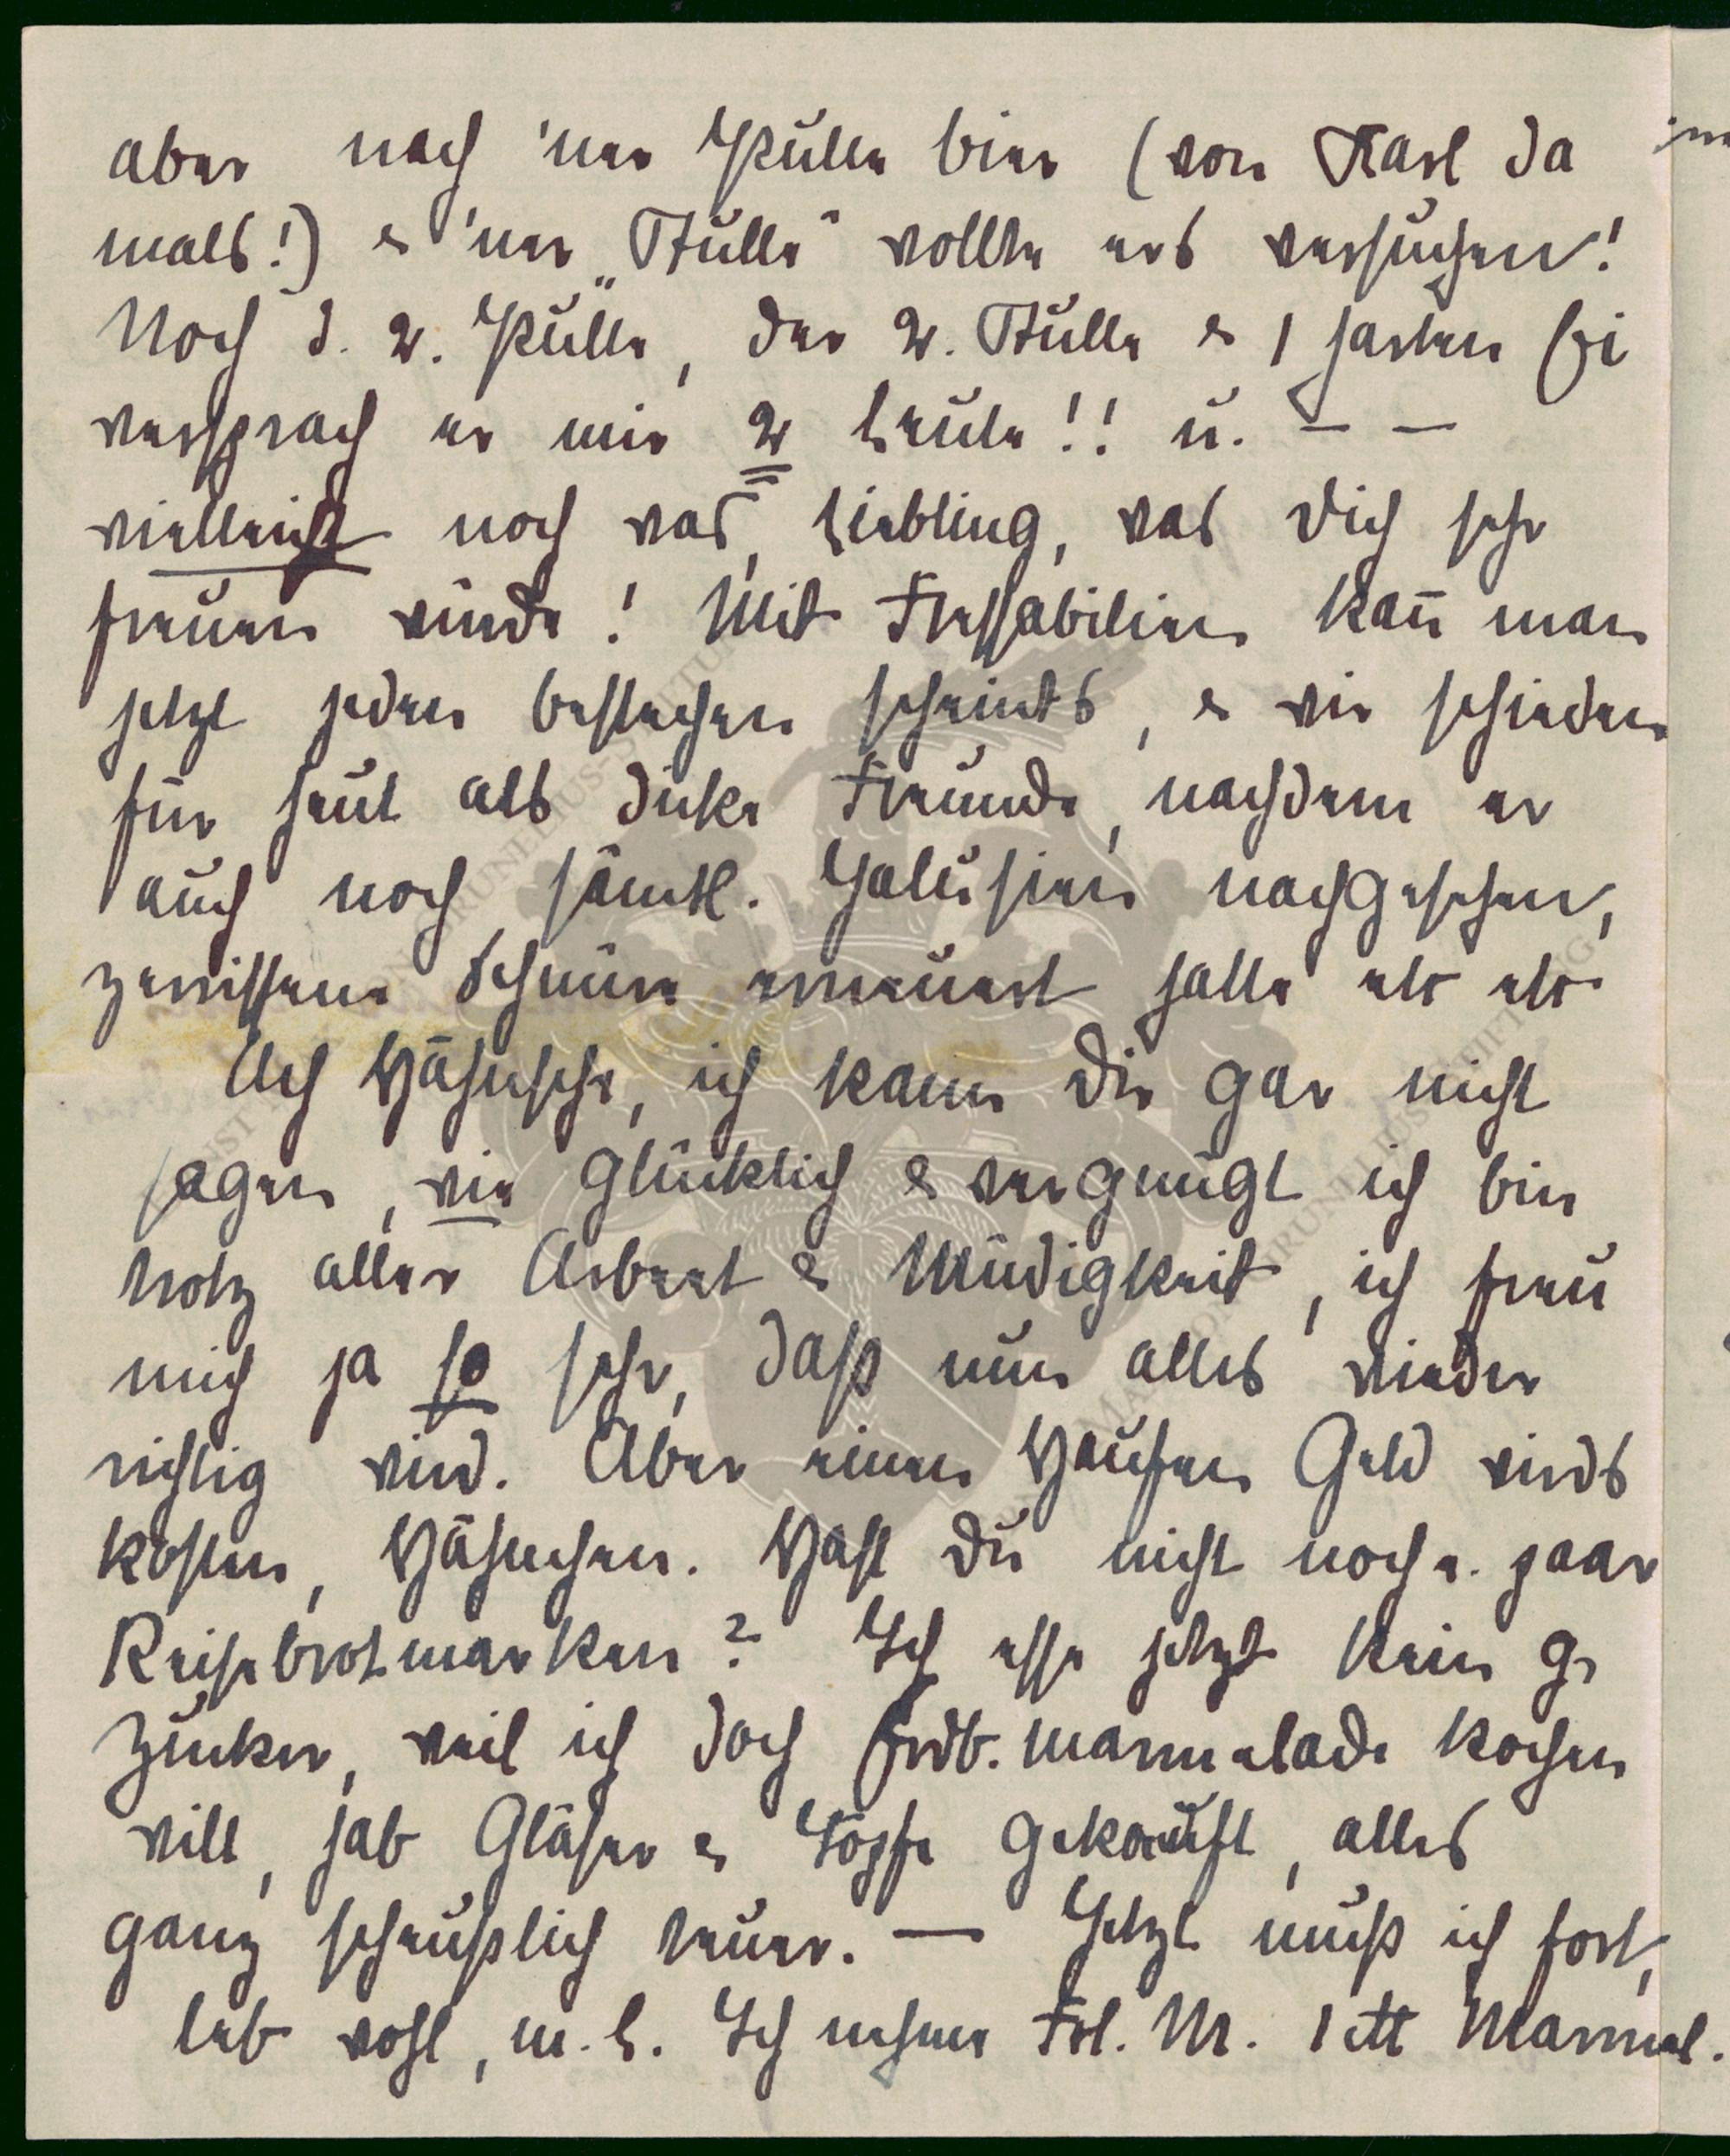 aber nach 'ner Pulle Bier (von Karl da
mals!) & 'ner „Stulle“ wollte ers versuchen!
Nach d. 2. Pulle, der 2. Stulle & 1 harten Ei
versprach er mir 2 Leute!! u. – –
vielleicht noch was, Liebling, was Dich sehr
freuen würde! Mit Fressabilien kann man
jetzt jeden bestechen scheints, & wir schieden
für heut als dicke Freunde, nachdem er
auch noch sämtl. Jalusien nachgesehen,
zerrissene Schnüre erneuert hatte etc etc
Ach Häschen, ich kann Dir gar nicht
sagen, wie glücklich & vergnügt ich bin
trotz aller Arbeit & Müdigkeit, ich freu
mich ja so sehr, daß nun alles wieder
richtig wird. Aber einen Haufen Geld wirds
kosten, Häschen. Hast Du nicht noch e. paar
Reisebrotmarken? Ich esse jetzt kein g
Zucker, weil ich doch Erdb. marmelade kochen
will, hab Gläser & Töpfe gekauft, alles
ganz scheußlich teuer. — Jetzt muß ich fort,
leb wohl, m. L. Ich nehme Frl. M. 1 Marmel.